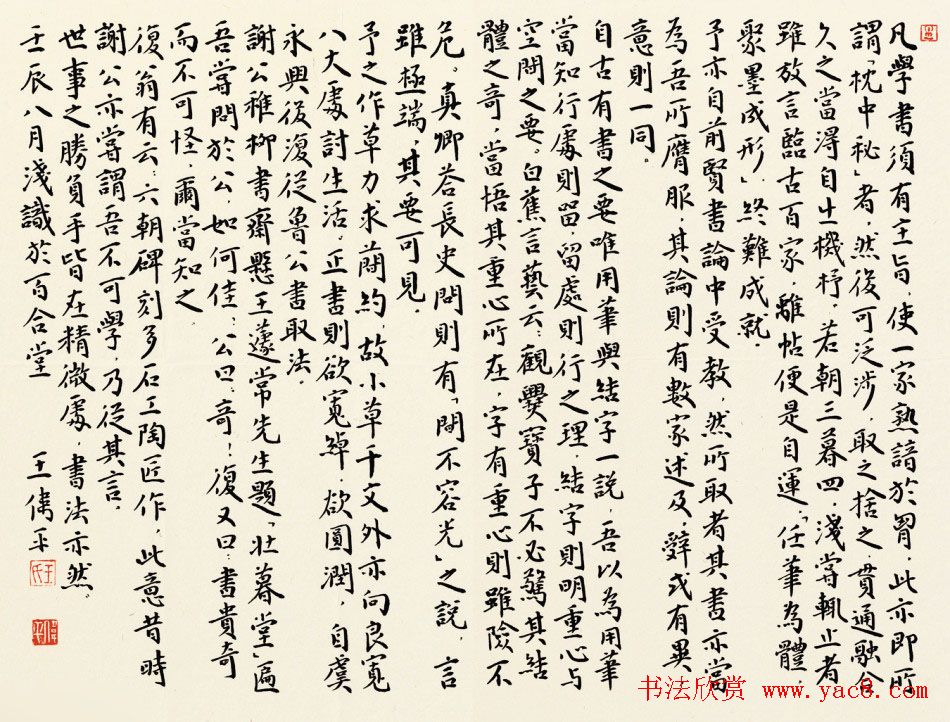 凡學書須有主旨，使一家熟諳於胷，此亦即所
謂「枕中秘」者，然後可泛涉，取之捨之，貫通融合，
久之當得自出機杼，若朝三暮四，淺嘗輒止者，
雖放言臨古百家，離帖便是自運，「任筆為體，
聚墨成形」，終難成就。
予亦自前賢書論中受教，然所取者其書亦當
為吾所膺服，其論則有數家述及，辭或有異
意則一同。
自古有書之要唯用筆與結字一說，吾以為用筆
當知行處則留，留處則行之理，結字則明重心與
空間之要。白蕉言藝云：觀爨寶子不必驚其結
體之奇，當悟其重心所在，字有重心則雖險不
危。真卿答長史問則有「間不容光」之說，言
雖極端，其要可見。
予之作草力求簡約，故小草千文外亦向良寬
八大處討生活，正書則欲寬綽，欲圓潤，自虞
永興後復從魯公書取法。
謝公稚柳書齋懸王蘧常先生題「壯暮堂」匾
吾嘗問於公，如何佳，公曰：奇！復又曰：書貴奇
而不可怪，爾當知之。
復翁有云：六朝碑刻多石工陶匠作，此意昔時
謝公亦嘗謂吾不可學，乃從其言。
世事之勝負手皆在精微處，書法亦然。
壬辰八月淺識於百合堂 王偉平
书法欣赏 www.yac8.com